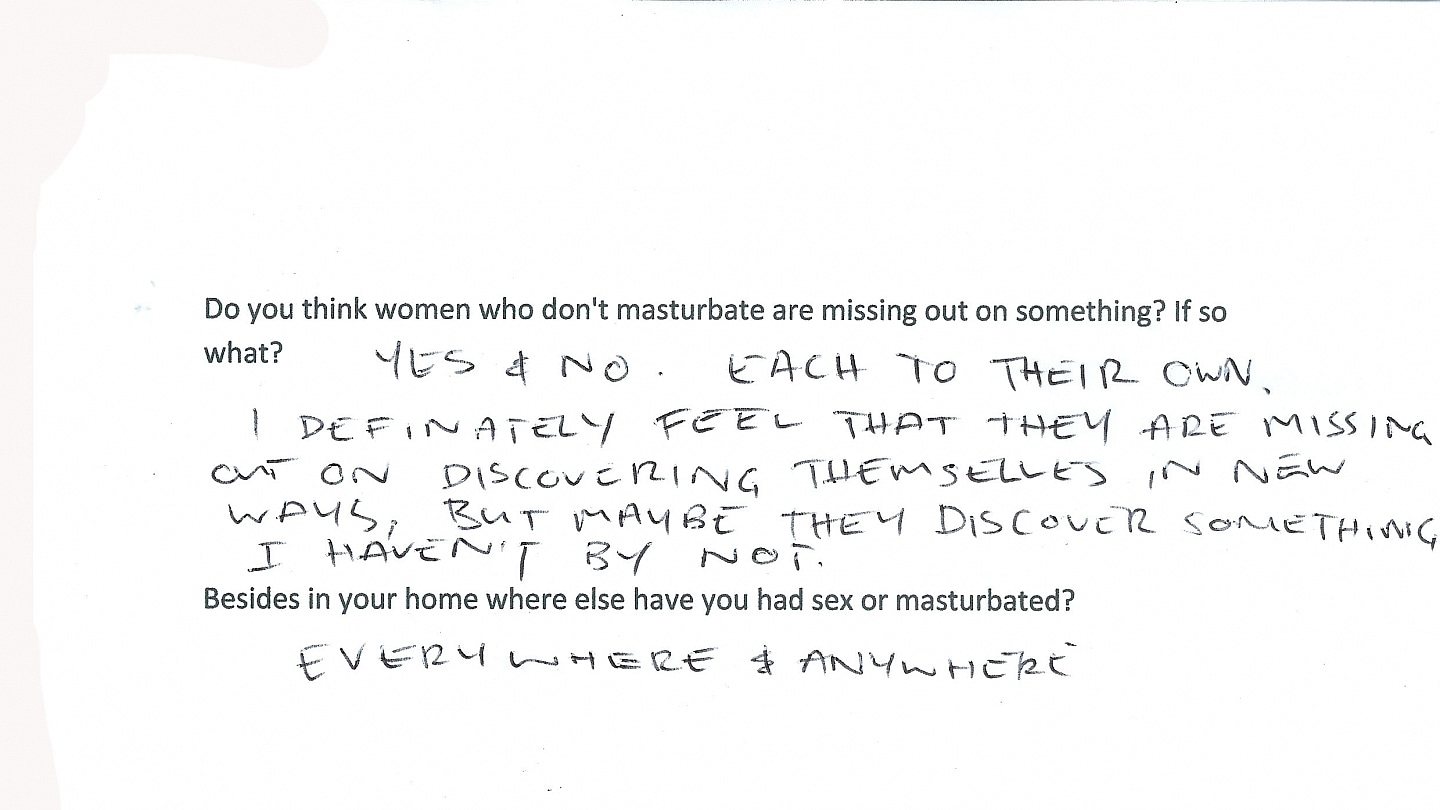 Do you think women who don't masturbate are missing out on something? If so
what? YES & NO. EACH TO THEIR OWN.
I DEFINATELY FEEL THAT THEY ARE MISSING
OUT ON DISCOVERING THEMSELLES IN NEW
WAYS, BUT MAYBE THEY DISCOVER SOMETHING
I HAVEN'T BY NOT.
Besides in your home where else have you had sex or masturbated?
EVERYWHERE & ANYWHERE